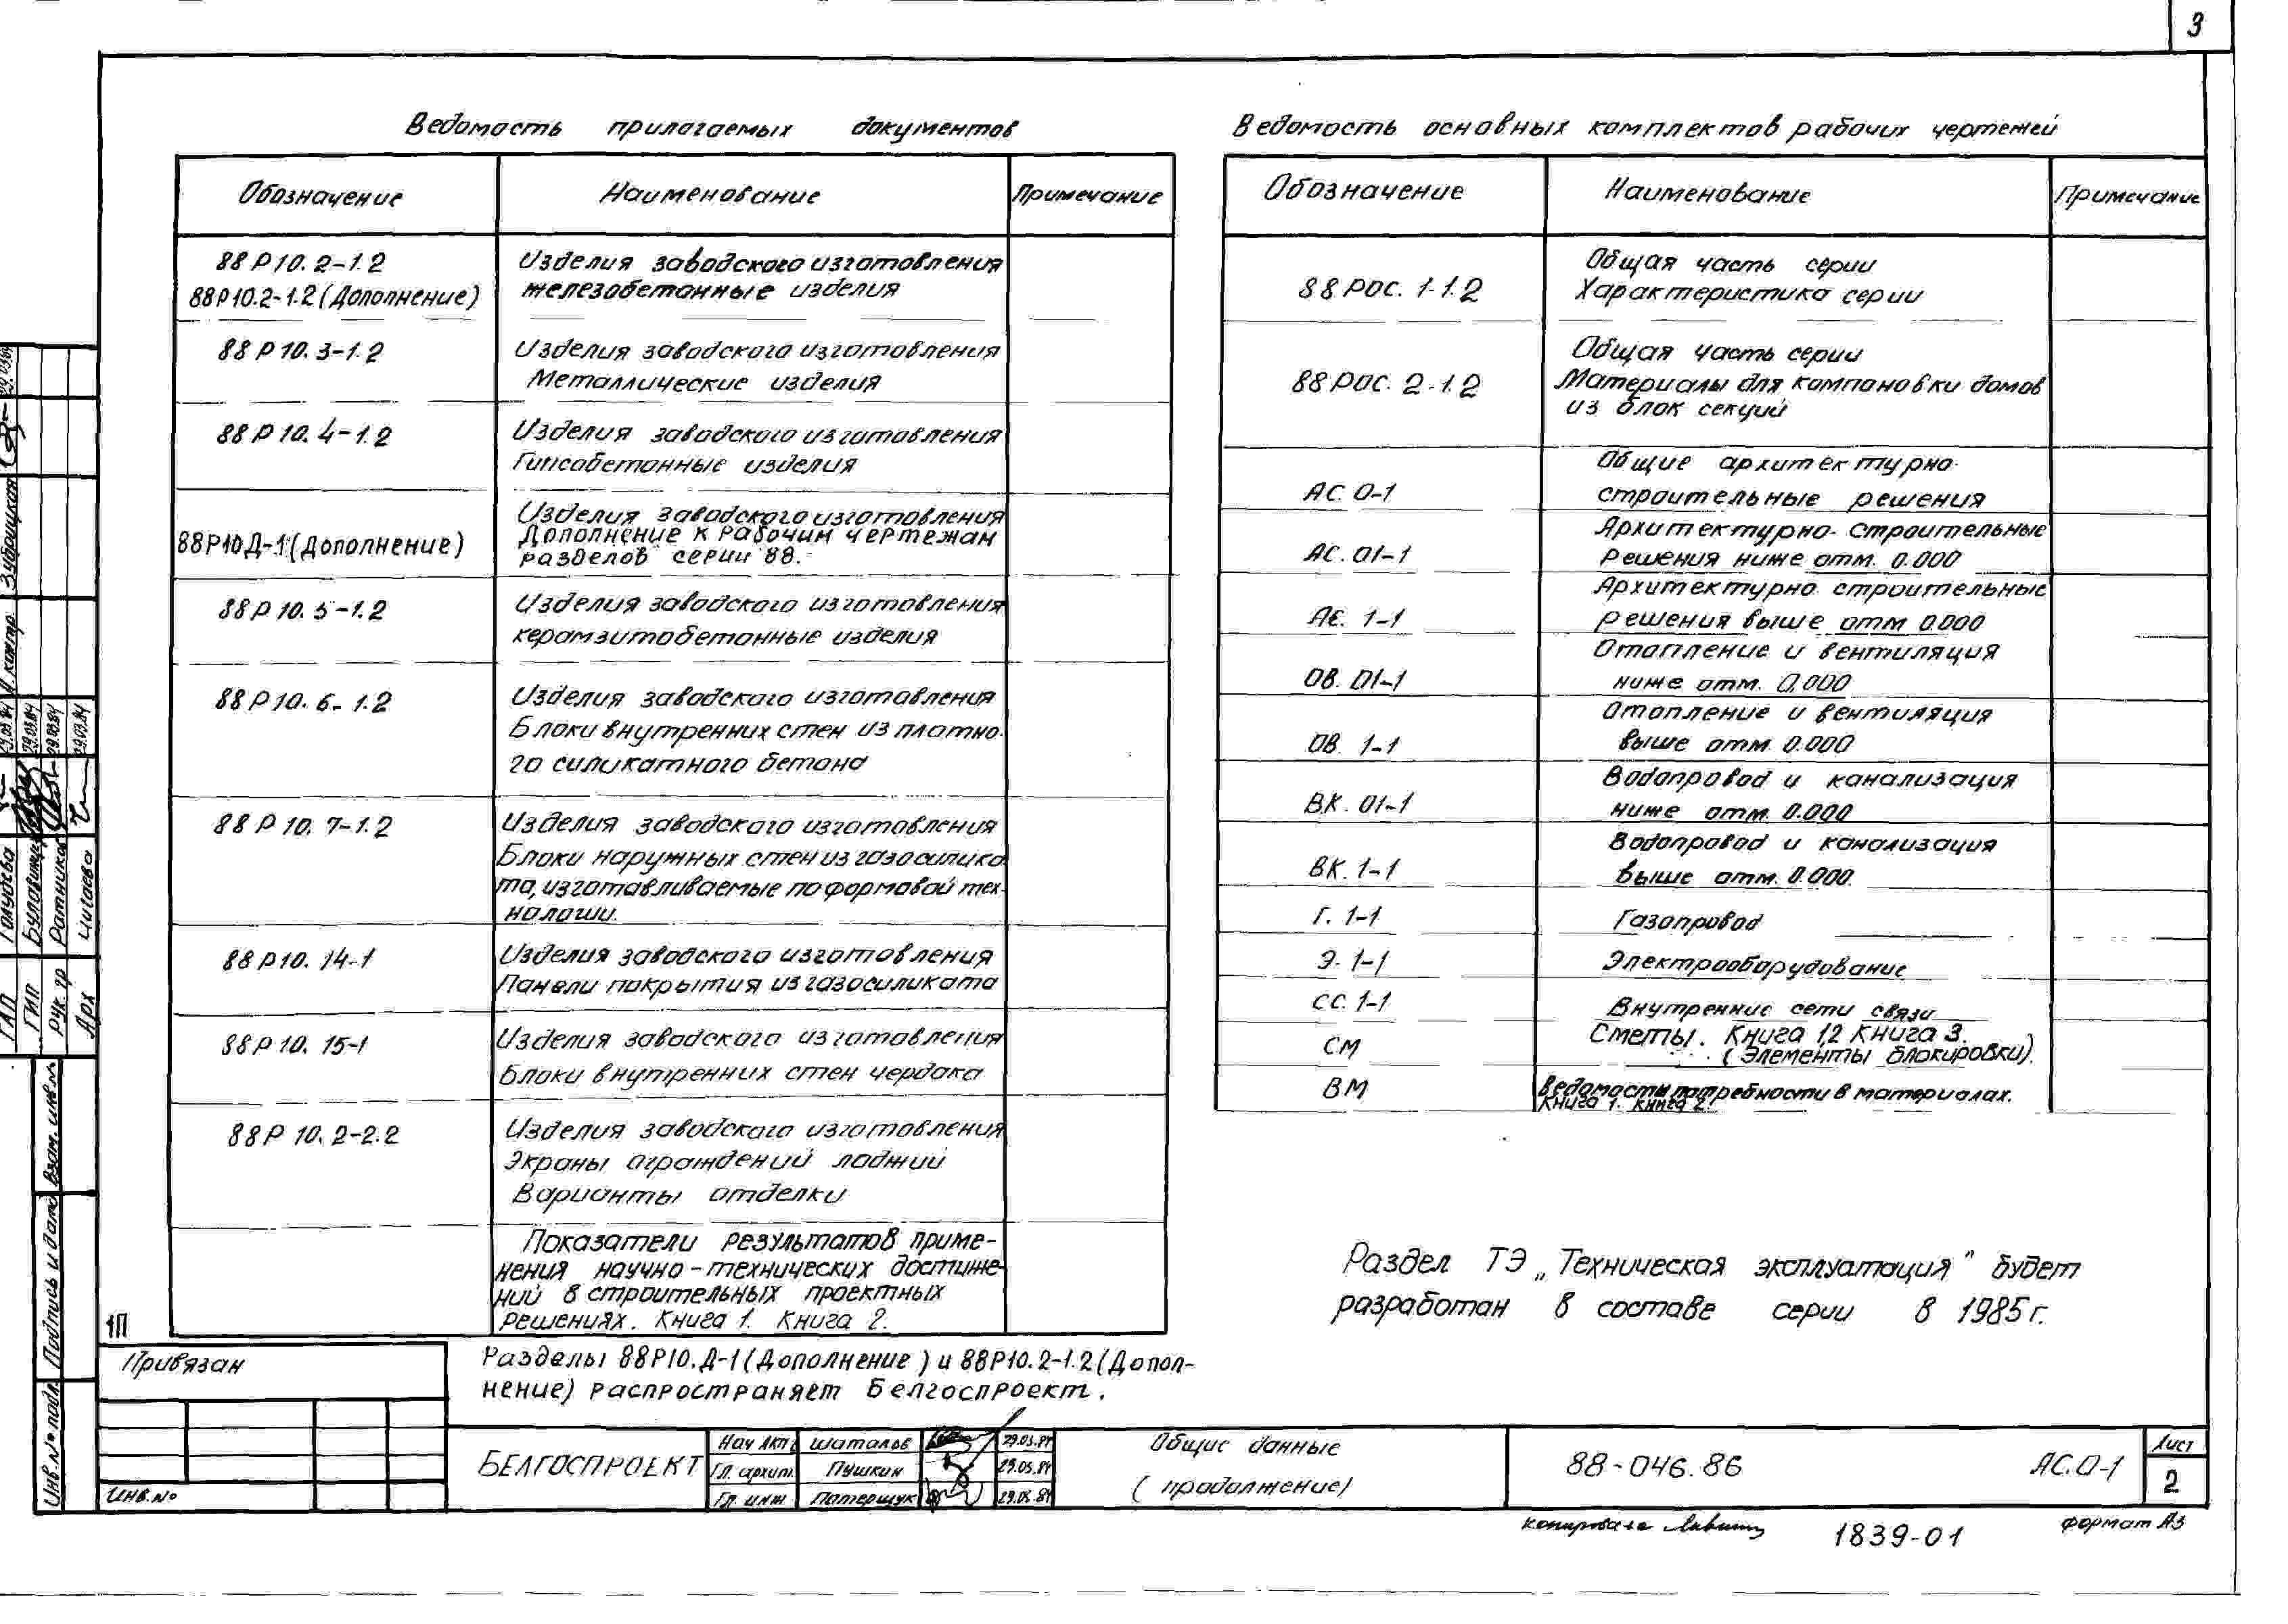 3
Ведомость прилагаемых документов
Обозначение Наименование Примечание
88Р10.2-1.2 Изделия заводского изготовления
88Р10.2-1.2 (Дополнение) железобетонные изделия
88Р10.3-1.2 Изделия заводского изготовления
Металлические изделия
88Р10.4-1.2 Изделия заводского изготовления
Гипсобетонные изделия
Изделия заводского изготовления
88Р10Д-1 (Дополнение) Дополнение к рабочим чертежам
разделов серии 88.
88Р10.5-1.2 Изделия заводского изготовления
керамзитобетонные изделия
88Р10.6-1.2 Изделия заводского изготовления
Блоки внутренних стен из плотно-
го силикатного бетона
88Р10.7-1.2 Изделия заводского изготовления
Блоки наружных стен из газосилика
та, изготавливаемые по формовой тех-
нологии.
88Р10.14-1 Изделия заводского изготовления
Панели покрытия из газосиликата
88Р10.15-1 Изделия заводского изготовления
Блоки внутренних стен чердака
88Р10.2-2.2 Изделия заводского изготовления
Экраны ограждений лоджий
Варианты отделки
Показатели результатов приме-
нения научно-технических достиже-
ний в строительных проектных
решениях. Книга 1. Книга 2.
Разделы 88Р10.Д-1 (Дополнение) и 88Р10.2-1.2 (Допол-
нение) распространяет Белгоспроект.
Ведомость основных комплектов рабочих чертежей
Обозначение Наименование Примечание
Общая часть серии
88РОС.1-1.2 Характеристика серии
Общая часть серии
88РОС.2-1.2 Материалы для компановки домов
из блок секций
Общие архитектурно-
АС.0-1 строительные решения
Архитектурно-строительные
АС.01-1 решения ниже отм. 0.000
Архитектурно строительные
АС.1-1 решения выше отм 0.000
Отопление и вентиляция
ОВ.01-1 ниже отм. 0.000
Отопление и вентиляция
ОВ.1-1 выше отм. 0.000
Водопровод и канализация
ВК.01-1 ниже отм. 0.000
Водопровод и канализация
ВК.1-1 выше отм. 0.000.
Г.1-1 Газопровод
Э.1-1 Электрооборудование
СС.1-1 Внутренние сети связи
СМ Сметы. Книга 1,2 Книга 3.
(Элементы блокировки).
ВМ Ведомость потребности в материалах.
Книга 1. Книга 2.
Раздел ТЭ „Техническая эксплуатация" будет
разработан в составе серии в 1985г.
1П
Привязан
Инв.№
БЕЛГОСПРОЕКТ
Нач АКП Шаталов 29.03.84
Гл. архит. Пушкин 29.03.84
Гл. инж Патерщук 29.03.84
Общие данные
(продолжение)
88-046.86 АС.0-1
Лист
2
копировала
1839-01
формат А3
Н. контр. Зубрицкая
ГАП
ГИП
Рук. гр Ратников 09.03.84
Арх Чигаева 09.03.84
Взам. инв.№
Подпись и дата
Инв.№ подл.